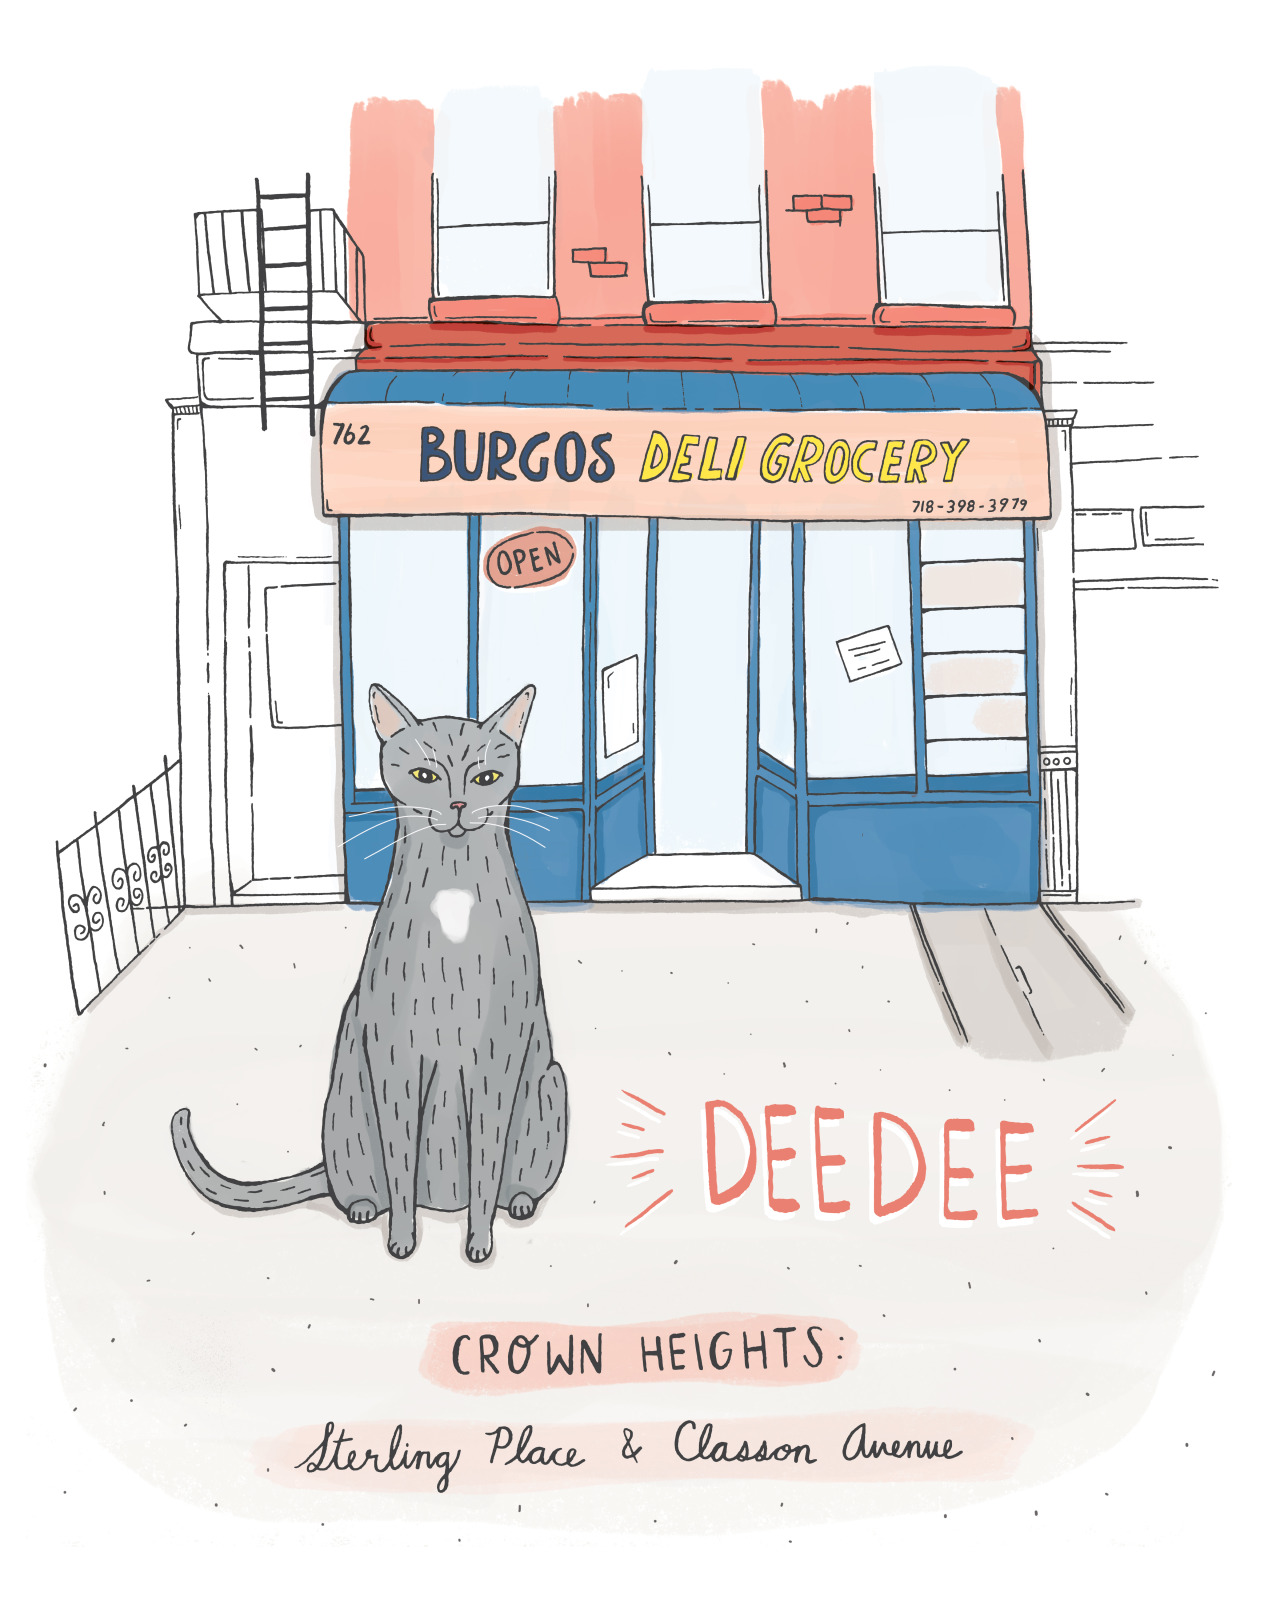 762
BURGOS DELI GROCERY
718-398-3979
OPEN
DEEDEE
CROWN HEIGHTS:
Sterling Place & Classon Avenue